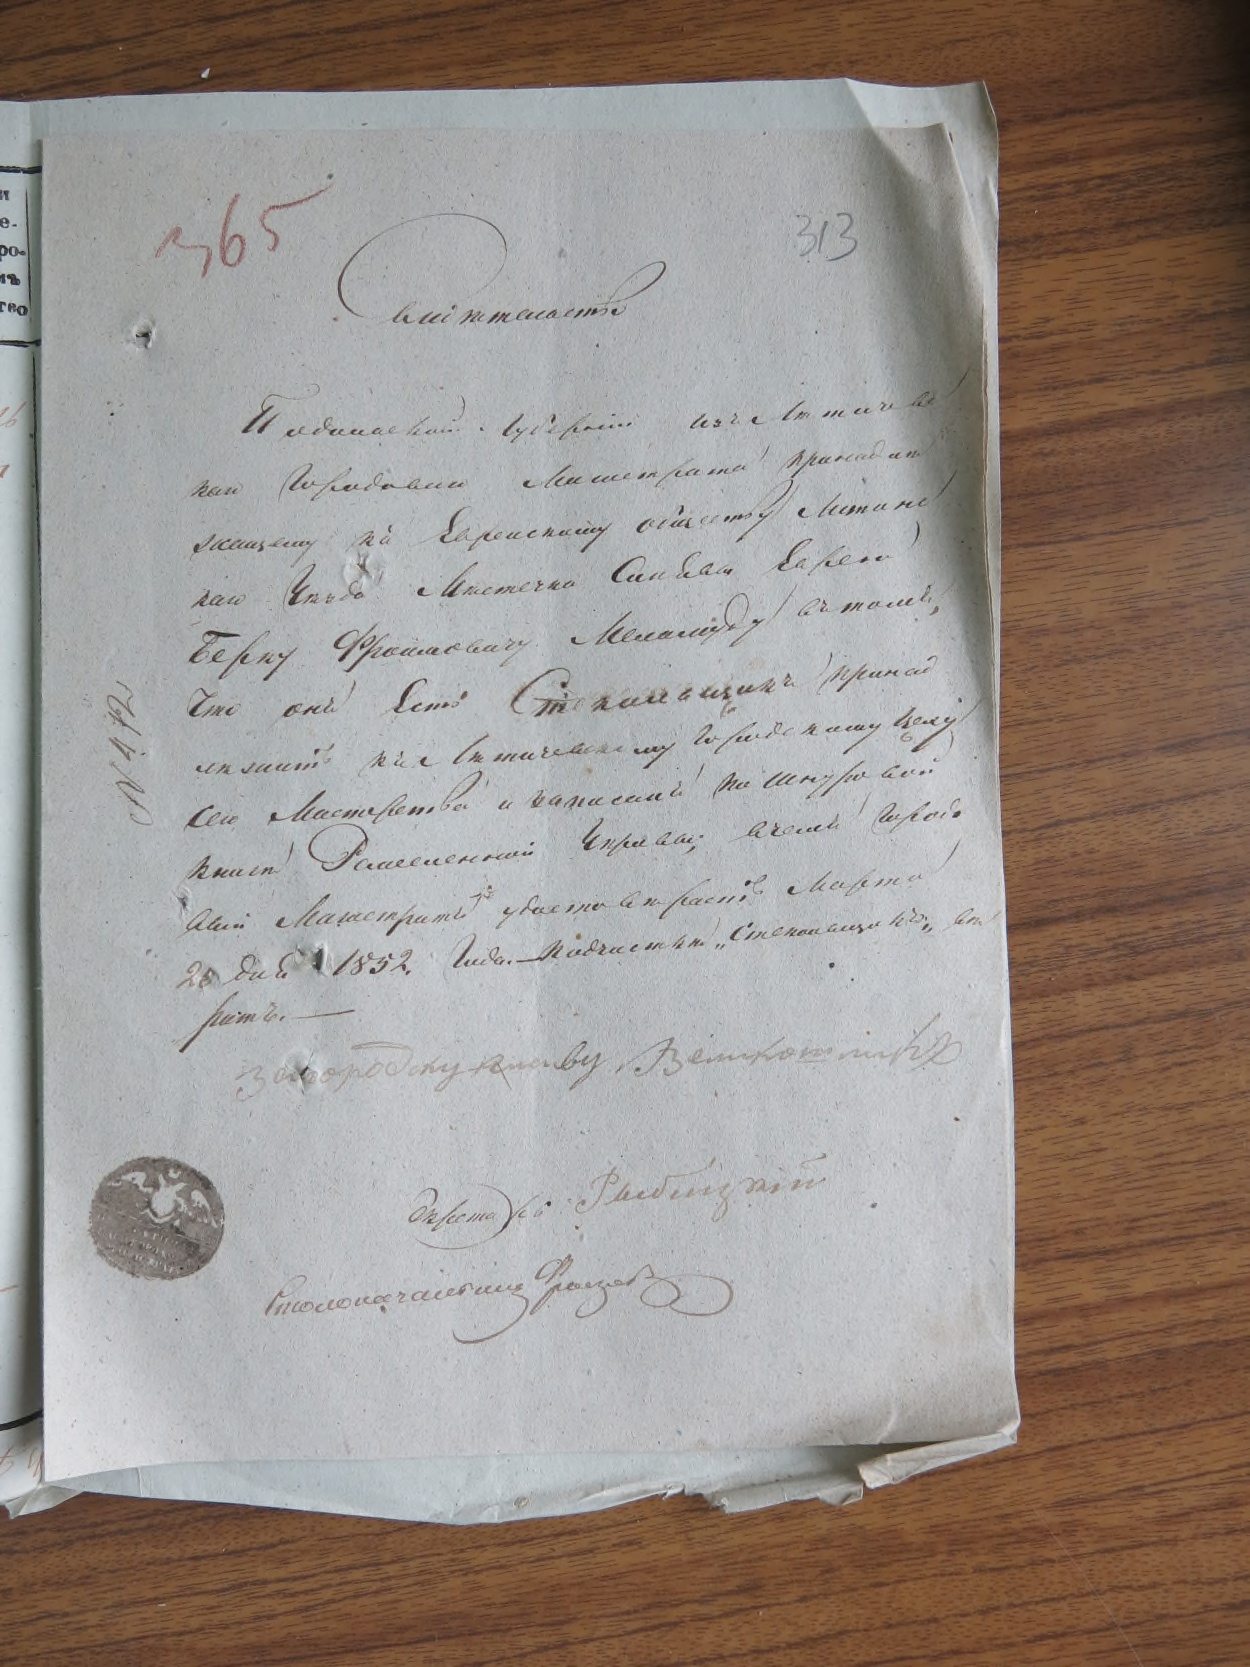 365
313
Свидѣтельство
Подольской Губерніи изъ Летичевс
каго Городоваго Магистрата принадле
жащему къ Еврейскому обществу Летичевс
каго Уѣзда Мѣстечка Еврею
Берку Фроимовичу Меламуду въ томъ,
что онъ есть Стекольщикъ принад
лежитъ къ Летичевскому Городскому Цеху
сего Мастерства и записанъ по шнуровой
книгѣ Ремесленной Управы, въ чемъ Городо
вый Магистратъ удостовѣряетъ Марта
дня 1852 Года. Подчисткѣ „Стекольщикъ„ вѣ
рить.
Секретарь
Столоначальникъ
и
е-
ро-
мъ
тво